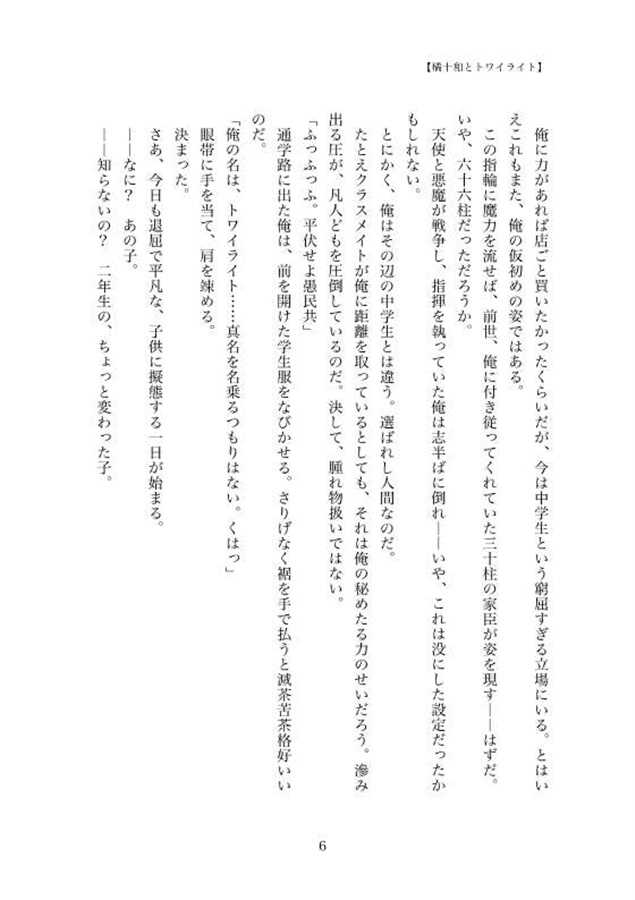 【橘十和とトワイライト】
俺に力があれば店ごと買いたかったくらいだが、今は中学生という窮屈すぎる立場にいる。とはい
えこれもまた、俺の仮初めの姿ではある。
この指輪に魔力を流せば、前世、俺に付き従ってくれていた三十柱の家臣が姿を現す――はずだ。
いや、六十六柱だっただろうか。
天使と悪魔が戦争し、指揮を執っていた俺は志半ばに倒れ――いや、これは没にした設定だったか
もしれない。
とにかく、俺はその辺の中学生とは違う。選ばれし人間なのだ。
たとえクラスメイトが俺に距離を取っているとしても、それは俺の秘めたる力のせいだろう。滲み
出る圧が、凡人どもを圧倒しているのだ。決して、腫れ物扱いではない。
「ふっふっふ。平伏せよ愚民共」
通学路に出た俺は、前を開けた学生服をなびかせる。さりげなく裾を手で払うと滅茶苦茶格好いい
のだ。
「俺の名は、トワイライト……真名を名乗るつもりはない。くはっ」
眼帯に手を当て、肩を竦める。
決まった。
さあ、今日も退屈で平凡な、子供に擬態する一日が始まる。
――なに？　あの子。
――知らないの？　二年生の、ちょっと変わった子。
6